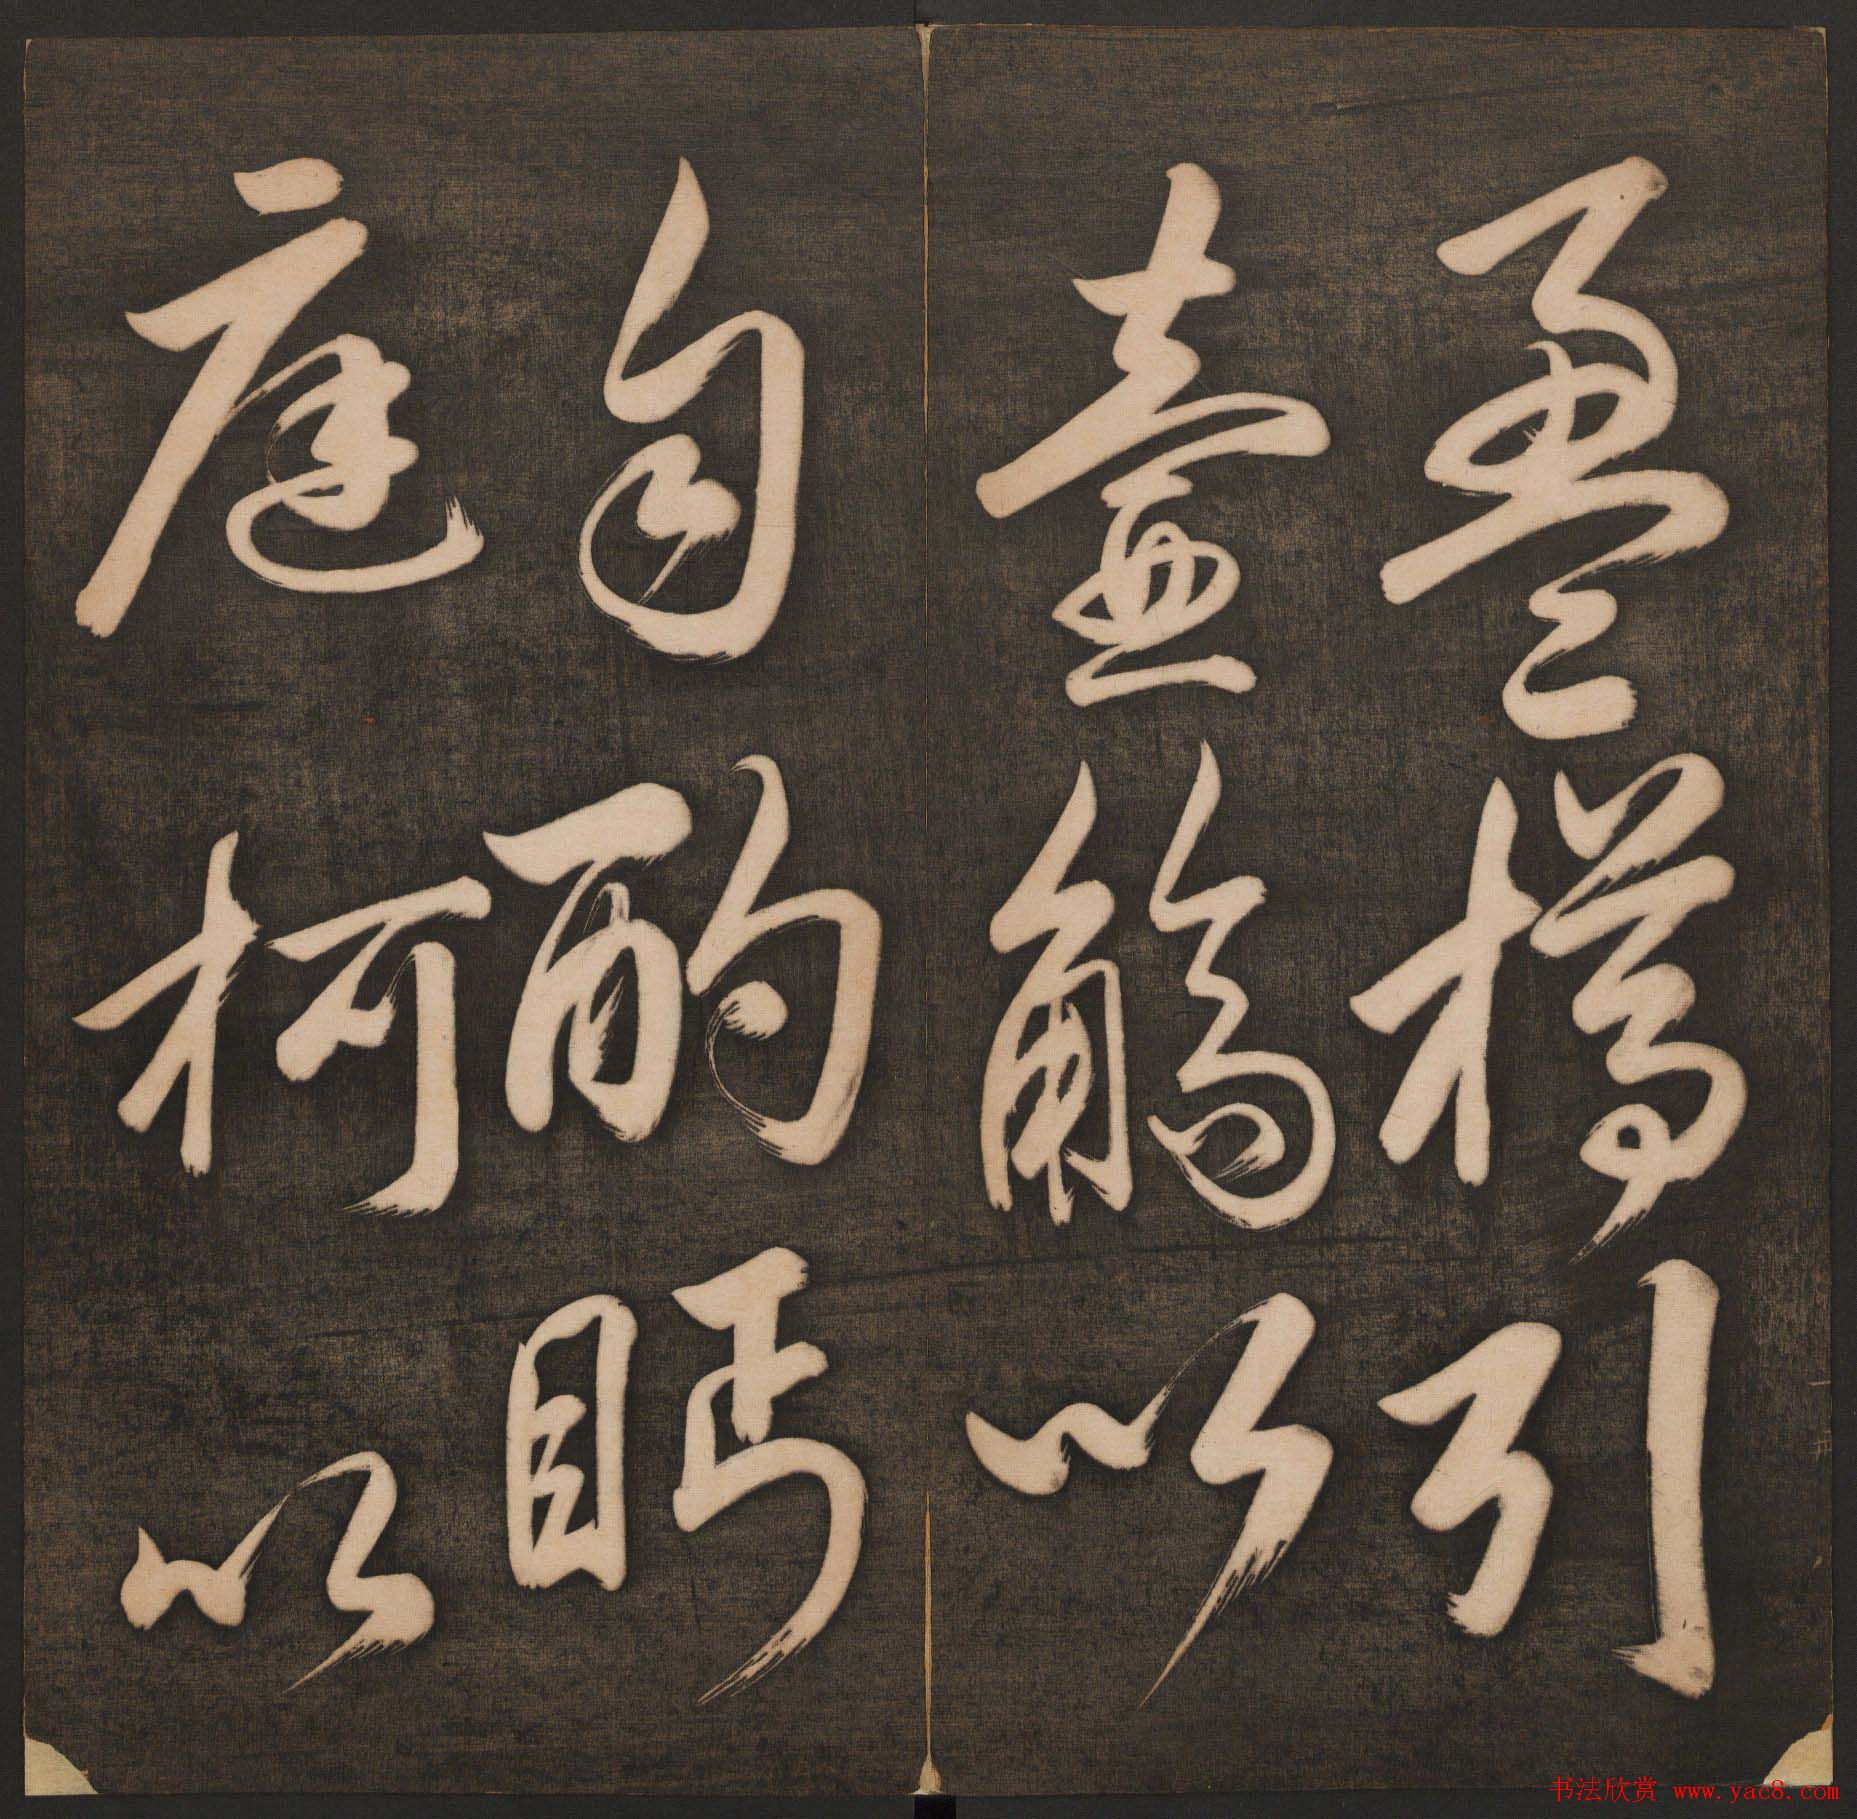 盈樽引
壺觴以
自酌眄
庭柯以
书法欣赏 www.yac8.com